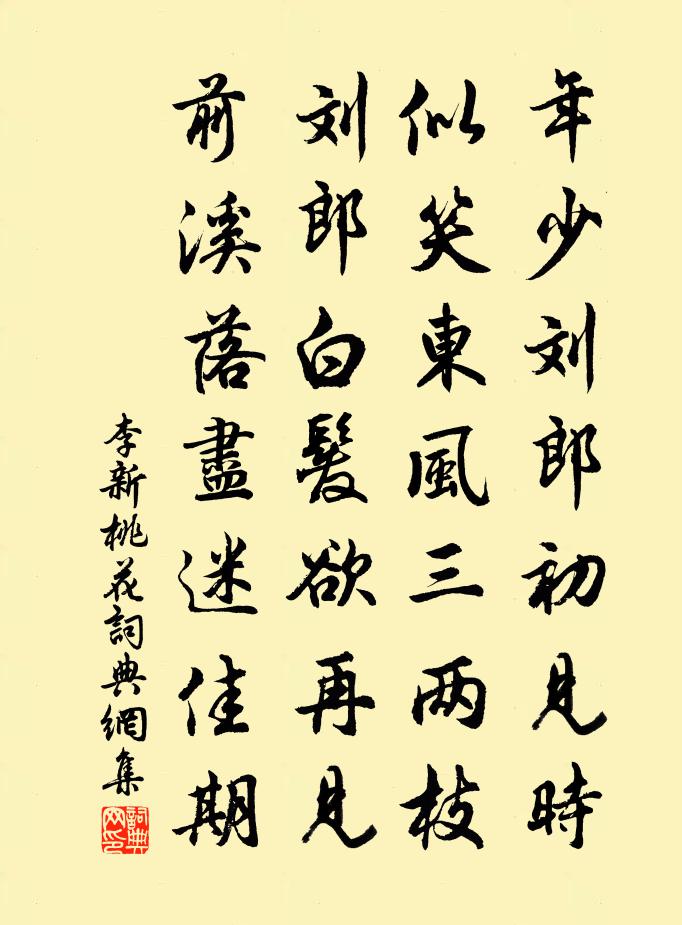 年少刘郎初见時
似笑東風三两枝
刘郎白髮欲再见
前溪落盡迷佳期
李新桃花詞典網集
詞典网印